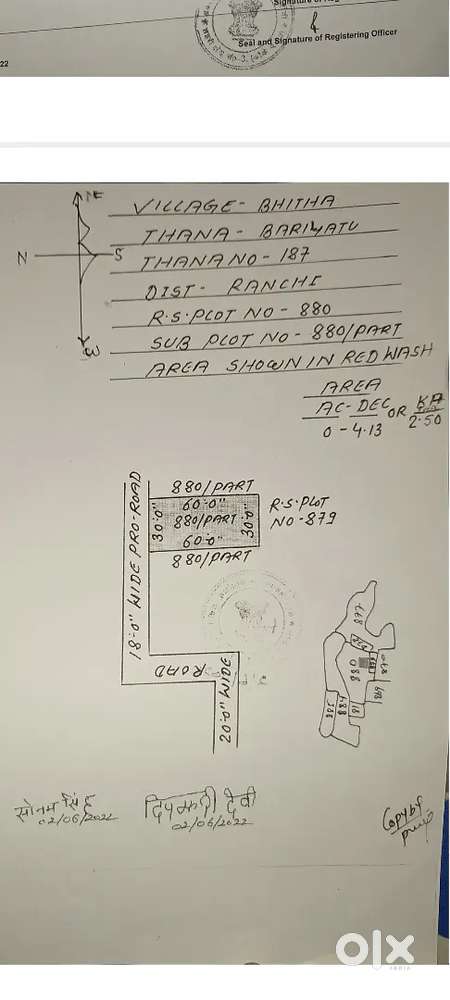 Signature of
Seal and Signature of Registering Officer
22
NE
N
S
W
VILLAGE- BHITHA
THANA- BARIYATU
THANA NO- 187
DIST- RANCHI
R.S. PLOT NO- 880
SUB PLOT NO- 880/PART
AREA SHOWN IN RED WASH
AREA
AC-DEC OR KA
0-4.13 2.50
880/PART
60'0"
30'0"
880/PART
30'0"
60'0"
880/PART
R.S. PLOT
NO-879
18'0" WIDE PRO-ROAD
ROAD
20'0" WIDE
877
880
879
881
884
885
सोनम सिंह
02/06/2022
दिपमाला देवी
02/06/2022
Copy by
olx
INDIA